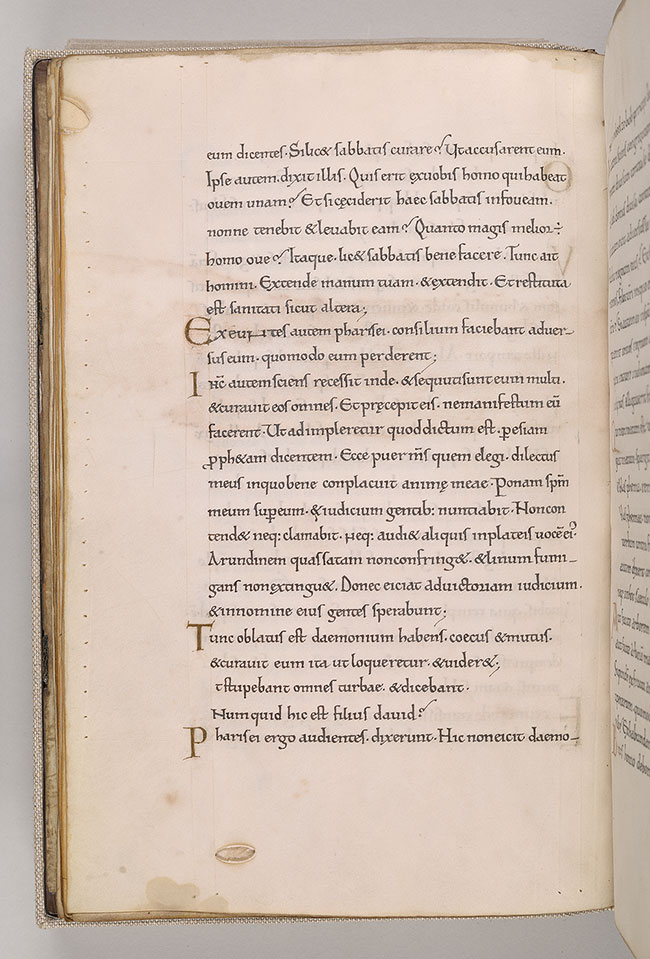 eum dicentes. Silic& sabbatis curare? Ut accusarent eum.
Ipse autem. dixit illis. Quis erit exuobis homo qui habeat
ouem unam? Et si cęciderit haec sabbatis infoueam.
nonne tenebit & leuabit eam? Quanto magis melior ÷
homo oue? Itaque. lic& sabbatis bene facere. Tunc ait
homini. Extende manum tuam. & extendit. Et restituta
est sanitati sicut altera;
Exeuntes autem pharisei. consilium faciebant aduer-
sus eum. quomodo eum perderent;
Ihc̄ autem sciens recessit inde. & sequuti sunt eum multi.
& curauit eos omnes. Et pręcepit eis. ne manifestum eū
facerent. Ut adimpleretur quod dictum est. ꝑ esiam
ꝓph&am dicentem. Ecce puer m̄s quem elegi. dilectus
meus inquo bene conplacuit animę meae. Ponam spm̄
meum super eum. & iudicium gentib: nuntiabit. Non con
tend& neq: clamabit. Neq: audi& aliquis inplateis uocē ei'
Arundinem quassatam non confring&. & linum fumi-
gans non extingu&. Donec eiciat aduictoriam iudicium.
& innomine eius gentes sperabunt;
Tunc oblatus est daemonium habens. coecus & mutus.
& curauit eum ita ut loqueretur. & uider&;
t stupebant omnes turbae. & dicebant.
Numquid hic est filius dauid?
Pharisei ergo audientes. dixerunt. Hic non eicit daemo-